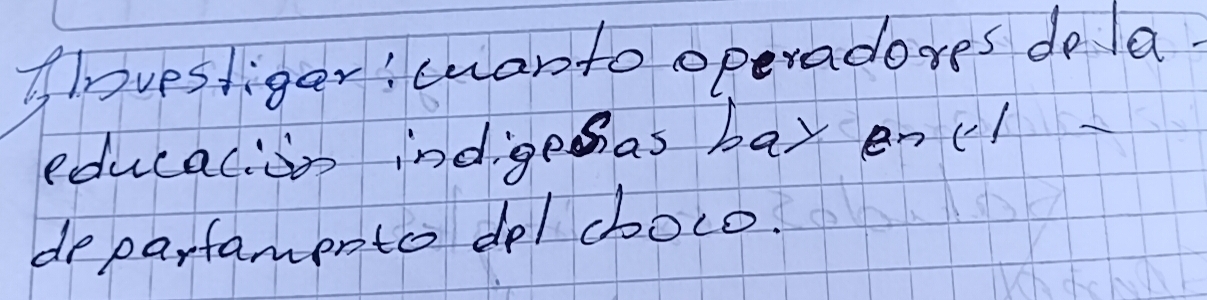 1. Investigar: cuanto operadores de la -
educación indigesas hay en el -
departamento del choco.